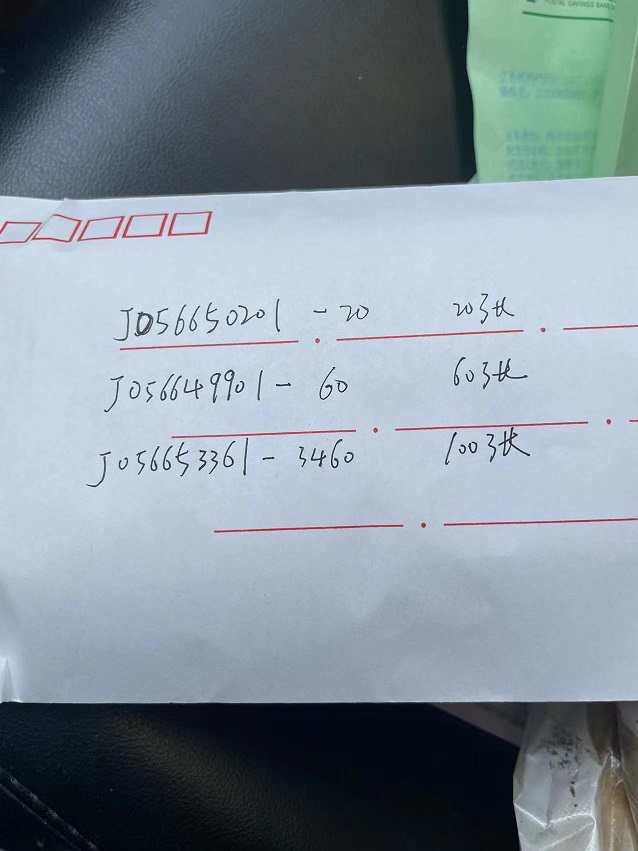 POSTAL SAVINGS BANK O
J056650201 - 20 20张
J056649901 - 60 60张
J056653361 - 3460 100张